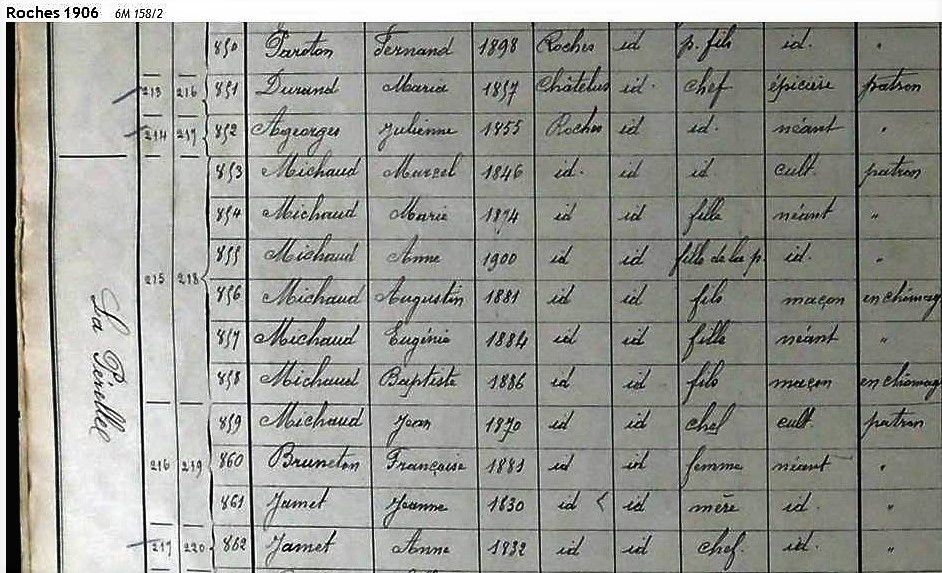 Roches 1906 6M 158/2
850 Paroton Fernand 1898 Roches id p. fils id. "
213 216 851 Durand Maria 1857 Châtelus id. chef épicière patron
214 217 852 Ageorges Julienne 1855 Roches id id. néant "
La Pérelle
853 Michaud Marcel 1846 id. id id cult. patron
854 Michaud Marie 1874 id id fille néant "
855 Michaud Anne 1900 id id fille de la p. id. "
215 218 856 Michaud Augustin 1881 id id fils maçon en chômag
857 Michaud Eugénie 1884 id id fille néant "
858 Michaud Baptiste 1886 id id fils maçon en chômag
859 Michaud Jean 1870 id id chef cult. patron
216 219 860 Bruneton Françoise 1881 id id femme néant "
861 Jamet Jeanne 1830 id id mère id. "
217 220 862 Jamet Anne 1832 id id chef. id. "